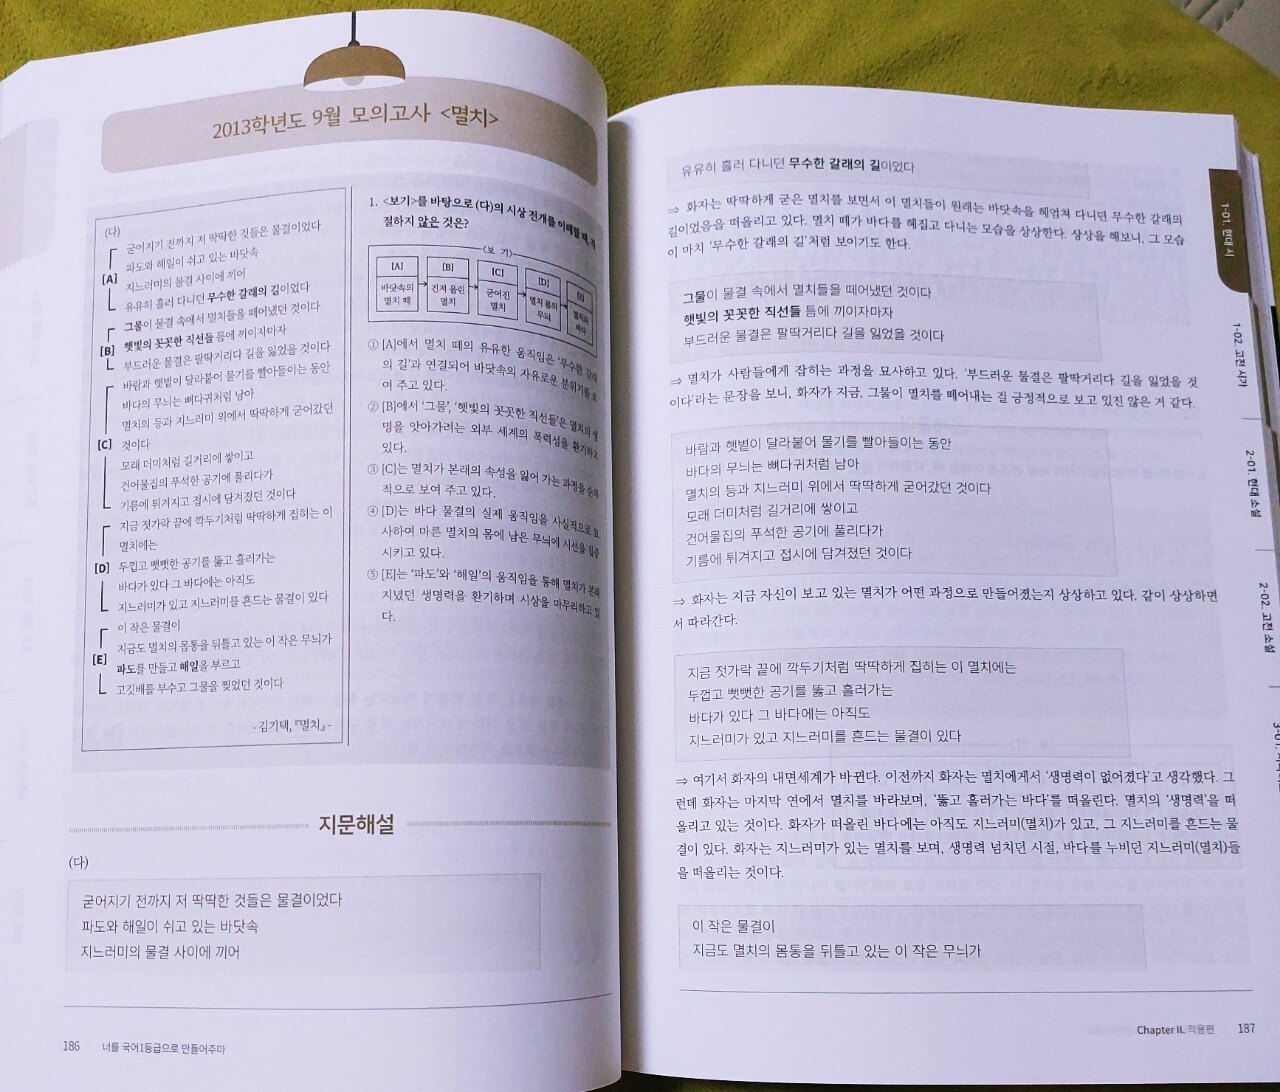 2013학년도 9월 모의고사 <멸치>
(다)
굳어지기 전까지 저 딱딱한 것들은 물결이었다
파도와 해일이 쉬고 있는 바닷속
[A]
지느러미의 물결 사이에 끼어
유유히 흘러 다니던 무수한 갈래의 길이었다
그물이 물결 속에서 멸치들을 떼어냈던 것이다
[B]
햇빛의 꼿꼿한 직선들 틈에 끼이자마자
부드러운 물결은 팔딱거리다 길을 잃었을 것이다
바람과 햇볕이 달라붙어 물기를 빨아들이는 동안
바다의 무늬는 뼈다귀처럼 남아
멸치의 등과 지느러미 위에서 딱딱하게 굳어갔던
[C]
것이다
모래 더미처럼 길거리에 쌓이고
건어물집의 푸석한 공기에 풀리다가
기름에 튀겨지고 접시에 담겨졌던 것이다
지금 젓가락 끝에 깍두기처럼 딱딱하게 집히는 이
멸치에는
[D]
두껍고 뻣뻣한 공기를 뚫고 흘러가는
바다가 있다 그 바다에는 아직도
지느러미가 있고 지느러미를 흔드는 물결이 있다
이 작은 물결이
지금도 멸치의 몸통을 뒤틀고 있는 이 작은 무늬가
[E]
파도를 만들고 해일을 부르고
고깃배를 부수고 그물을 찢었던 것이다
- 김기택, 『멸치』 -
1. <보기>를 바탕으로 (다)의 시상 전개를 이해할 때, 적
절하지 않은 것은?
<보 기>
[A]
바닷속의
멸치 떼
[B]
건져 올린
멸치
[C]
굳어진
멸치
[D]
멸치 몸의
무늬
[E]
멸치와
바다
① [A]에서 멸치 떼의 유유한 움직임은 '무수한 갈래
의 길'과 연결되어 바닷속의 자유로운 분위기를 보
여 주고 있다.
② [B]에서 '그물', '햇빛의 꼿꼿한 직선들'은 멸치의 생
명을 앗아가려는 외부 세계의 폭력성을 환기하고
있다.
③ [C]는 멸치가 본래의 속성을 잃어 가는 과정을 순차
적으로 보여 주고 있다.
④ [D]는 바다 물결의 실제 움직임을 사실적으로 묘
사하여 마른 멸치의 몸에 남은 무늬에 시선을 집중
시키고 있다.
⑤ [E]는 '파도'와 '해일'의 움직임을 통해 멸치가 본래
지녔던 생명력을 환기하며 시상을 마무리하고 있
다.
지문해설
(다)
굳어지기 전까지 저 딱딱한 것들은 물결이었다
파도와 해일이 쉬고 있는 바닷속
지느러미의 물결 사이에 끼어
186 너를 국어1등급으로 만들어주마
유유히 흘러 다니던 무수한 갈래의 길이었다
⇒ 화자는 딱딱하게 굳은 멸치를 보면서 이 멸치들이 원래는 바닷속을 헤엄쳐 다니던 무수한 갈래의
길이었음을 떠올리고 있다. 멸치 떼가 바다를 헤집고 다니는 모습을 상상한다. 상상을 해보니, 그 모습
이 마치 '무수한 갈래의 길'처럼 보이기도 한다.
그물이 물결 속에서 멸치들을 떼어냈던 것이다
햇빛의 꼿꼿한 직선들 틈에 끼이자마자
부드러운 물결은 팔딱거리다 길을 잃었을 것이다
⇒ 멸치가 사람들에게 잡히는 과정을 묘사하고 있다. '부드러운 물결은 팔딱거리다 길을 잃었을 것
이다'라는 문장을 보니, 화자가 지금, 그물이 멸치를 떼어내는 걸 긍정적으로 보고 있진 않은 거 같다.
바람과 햇볕이 달라붙어 물기를 빨아들이는 동안
바다의 무늬는 뼈다귀처럼 남아
멸치의 등과 지느러미 위에서 딱딱하게 굳어갔던 것이다
모래 더미처럼 길거리에 쌓이고
건어물집의 푸석한 공기에 풀리다가
기름에 튀겨지고 접시에 담겨졌던 것이다
⇒ 화자는 지금 자신이 보고 있는 멸치가 어떤 과정으로 만들어졌는지 상상하고 있다. 같이 상상하면
서 따라간다.
지금 젓가락 끝에 깍두기처럼 딱딱하게 집히는 이 멸치에는
두껍고 뻣뻣한 공기를 뚫고 흘러가는
바다가 있다 그 바다에는 아직도
지느러미가 있고 지느러미를 흔드는 물결이 있다
⇒ 여기서 화자의 내면세계가 바뀐다. 이전까지 화자는 멸치에게서 '생명력이 없어졌다'고 생각했다. 그
런데 화자는 마지막 연에서 멸치를 바라보며, '뚫고 흘러가는 바다'를 떠올린다. 멸치의 '생명력'을 떠
올리고 있는 것이다. 화자가 떠올린 바다에는 아직도 지느러미(멸치)가 있고, 그 지느러미를 흔드는 물
결이 있다. 화자는 지느러미가 있는 멸치를 보며, 생명력 넘치던 시절, 바다를 누비던 지느러미(멸치)들
을 떠올리는 것이다.
이 작은 물결이
지금도 멸치의 몸통을 뒤틀고 있는 이 작은 무늬가
Chapter II. 적용편 187
1-01. 현대 시
1-02. 고전 시가
2-01. 현대 소설
2-02. 고전 소설